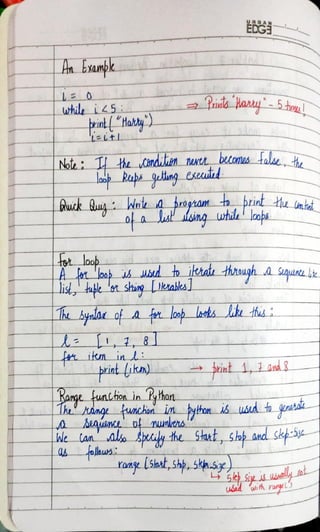 URBAN
EDGE
An Example
i = 0
while i < 5 :
print ( "Harry" )
i = i + 1
⇒ Prints "Harry" - 5 times!
Note : If the condition never becomes false, the
loop keeps getting executed.
Quick Quiz : Write a program to print the content
of a list using while loops
for loop
A for loop is used to iterate through a sequence like
list, tuple or string [Iterables]
The syntax of a for loop looks like this :
l = [1, 7, 8]
for item in l :
print (item) → print 1, 7 and 8
Range function in Python
The range function in python is used to generate
a sequence of numbers
We can also specify the start, stop and step-size
as follows :
range (start, stop, step-size)
↳ step size is usually not
used with range()